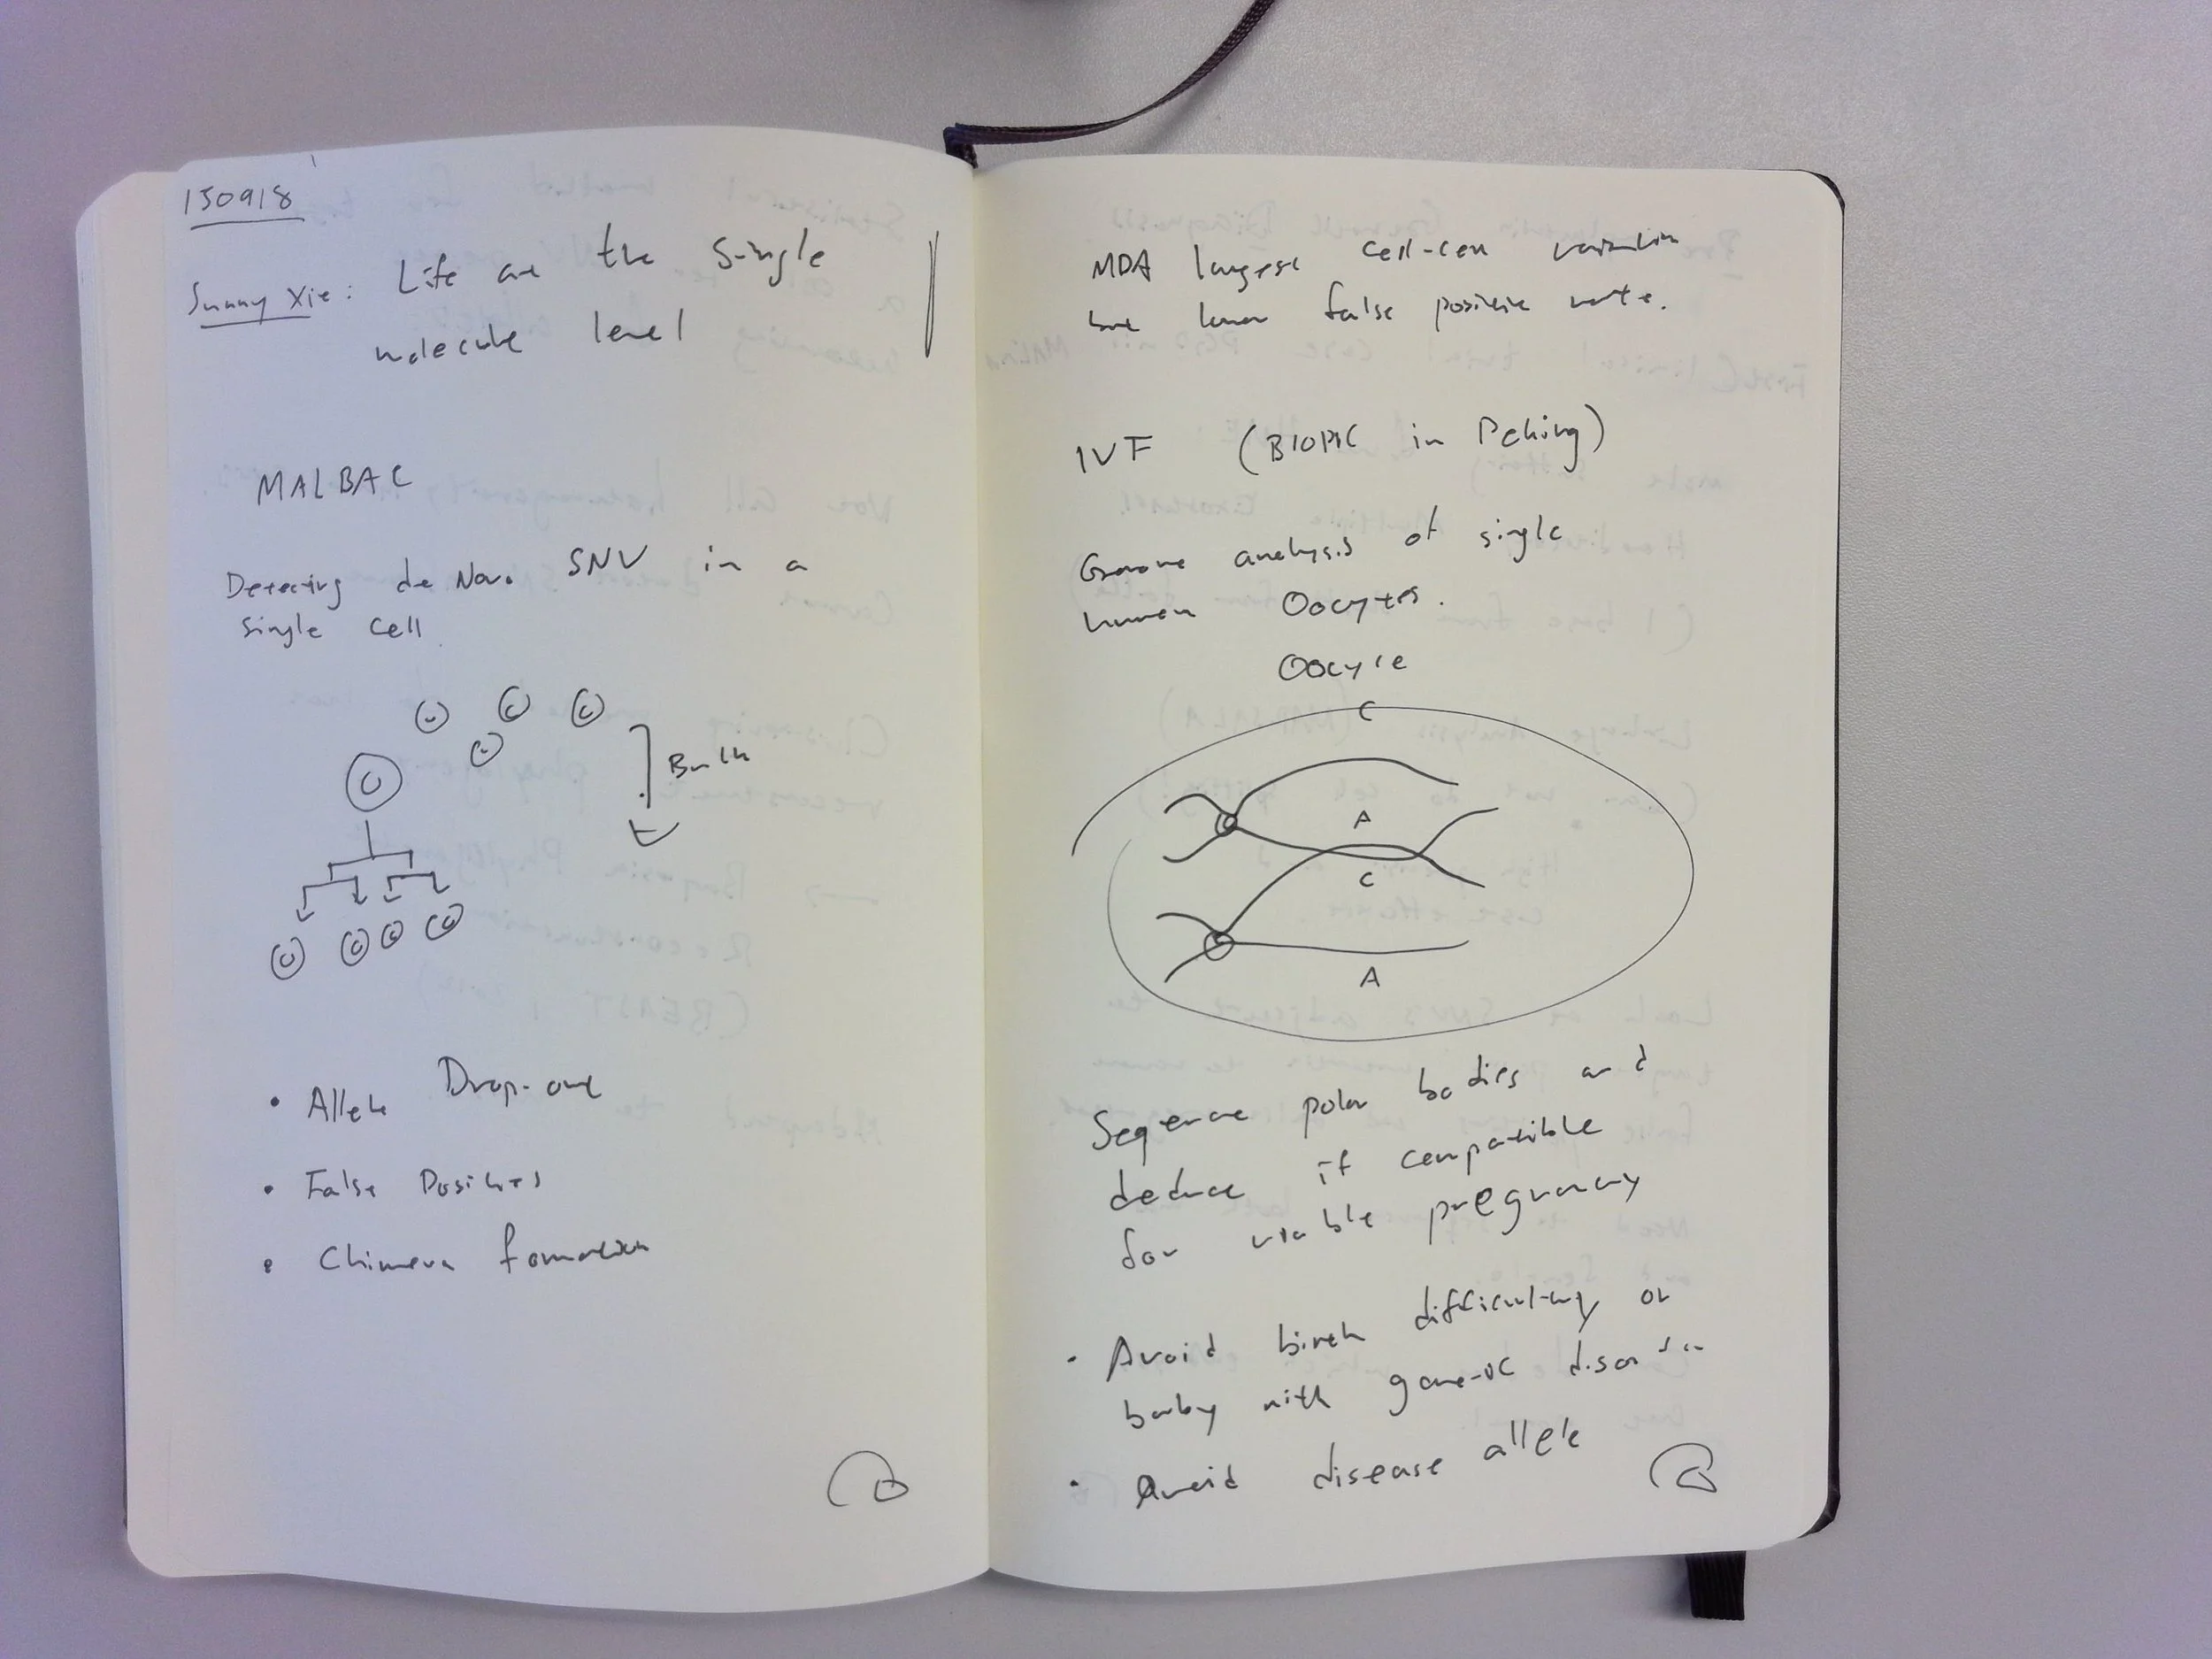 150918
Sunny Xie: Life at the Single
molecule level
MALBAC
Detecting de Novo SNV in a
single cell
Bulk
• Allele Drop-out
• False Positives
• Chimera formation
MDA largest cell-cell variation
but lower false positive rate.
IVF (BIOPIC in Peking)
Genome analysis of single
human Oocytes.
Oocyte
C
A
C
A
Sequence polar bodies and
deduce if compatible
for viable pregnancy
• Avoid birth difficulty or
baby with genetic
• Avoid disease allele